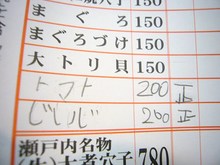 まぐろ 150
まぐろづけ 150
大トリ貝 150
トマト 200 正
200 正
瀬戸内名物
大煮穴子 780